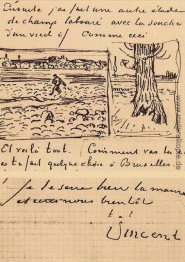 Ensuite j'ai fait une autre étude
de champ labouré avec la souche
d'un vieil if Comme ceci
Et voilà tout. Comment vas tu
as tu fait quelque chose à Bruxelles
je te serre bien la main
et écris nous bientôt
t. à t.
Vincent